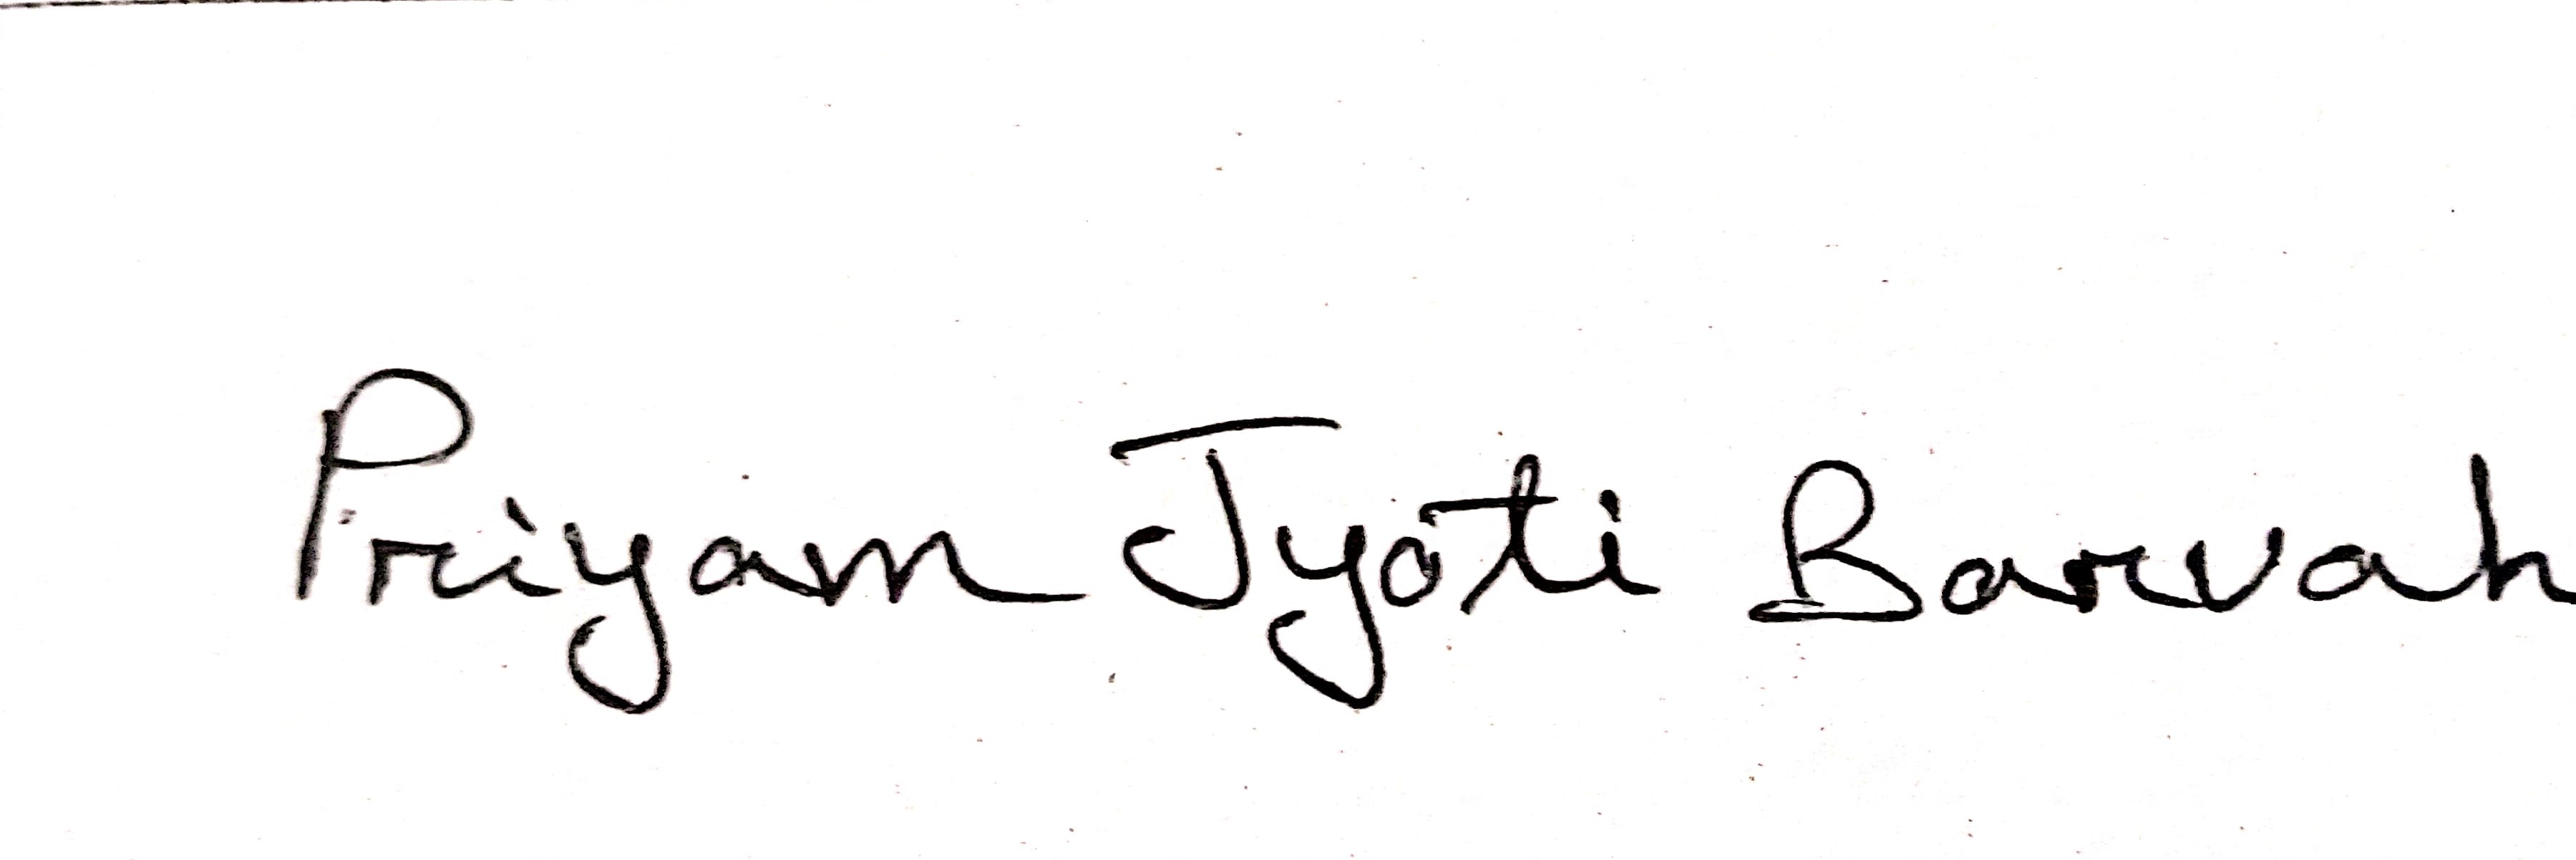 Priyam Jyoti Barvah